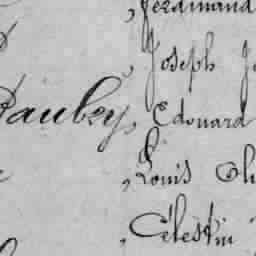 , Ferdinand
, Joseph
Dauby, Edouard
, Louis
, Célestin